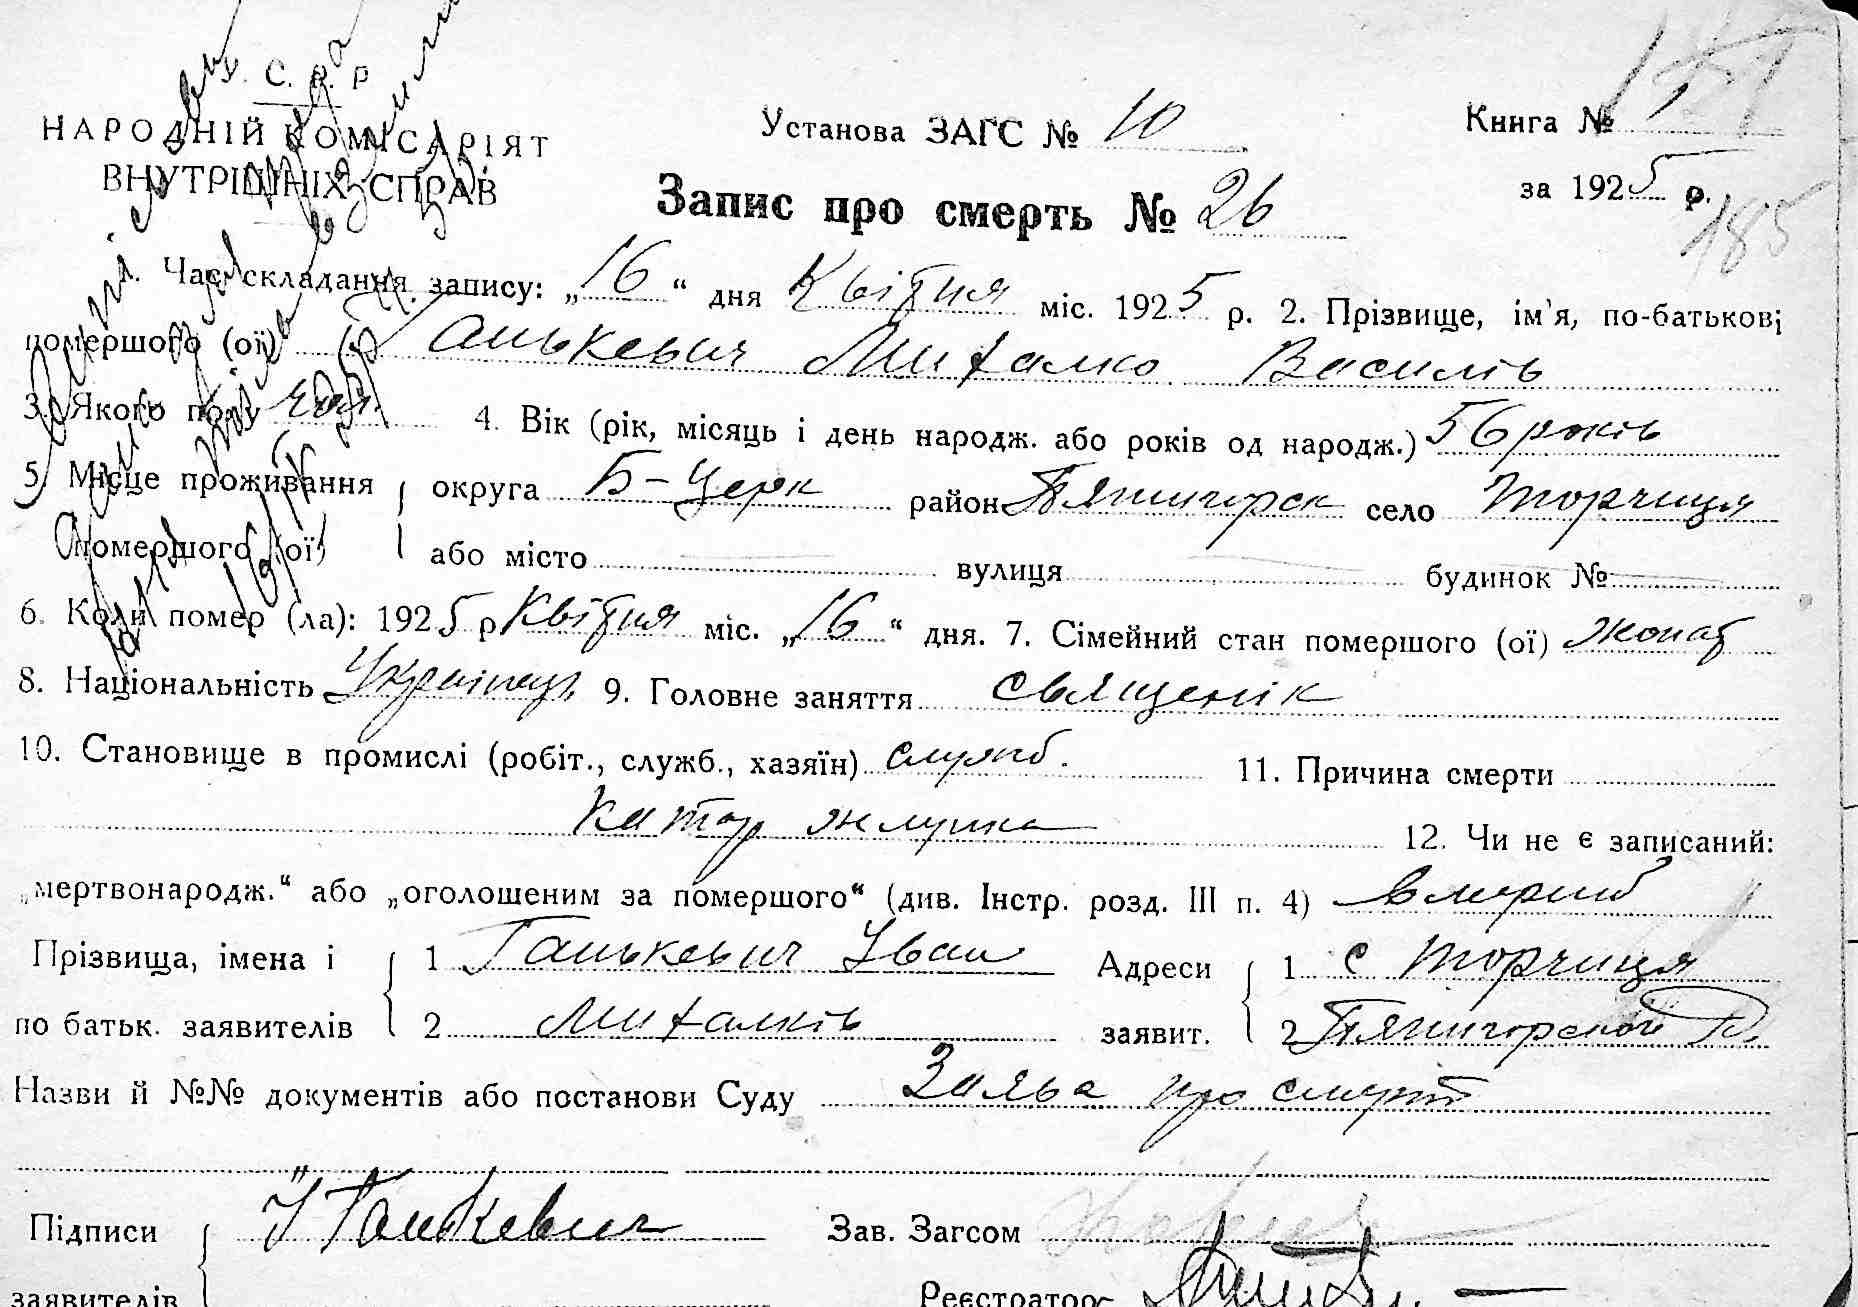 С. Р. Р
НАРОДНІЙ КОМІСАРІЯТ
ВНУТРІШНІХ СПРАВ
Установа ЗАГС № 10
Книга № 1
за 1925 р.
185
Запис про смерть № 26
1. Час складання запису: „16“ дня Квітня міс. 1925 р. 2. Прізвище, ім'я, по-батькові
помершого (ої) Ганькевич Михалко Василів
3. Якого полу чол. 4. Вік (рік, місяць і день народж. або років од народж.) 56 років
5. Місце проживання округа Б-Церк район Пятигорск село Торчиця
помершого (ої) або місто вулиця будинок №
6. Коли помер (ла): 1925 р Квітня міс. „16“ дня. 7. Сімейний стан помершого (ої) жонат
8. Національність Українець 9. Головне заняття священік
10. Становище в промислі (робіт., служб., хазяїн) служб. 11. Причина смерти
Катар жлунка 12. Чи не є записаний:
„мертвонародж.“ або „оголошеним за помершого“ (див. Інстр. розд. III п. 4)
Прізвища, імена і 1 Ганькевич Іван Адреси 1 с Торчиця
по батьк. заявителів 2 Михалків заявит. 2 Пятигорского Р.
Назви й №№ документів або постанови Суду Заява про смерть
Підписи Ганькевич Зав. Загсом
заявителів Реєстратор